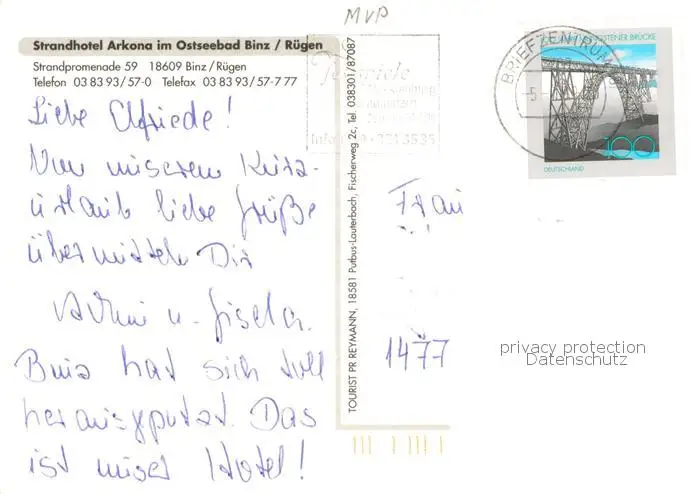 MVP
Strandhotel Arkona im Ostseebad Binz / Rügen
Strandpromenade 59 18609 Binz / Rügen
Telefon 03 83 93 / 57-0 Telefax 03 83 93 / 57-7 77
Liebe Elfriede!
Von unserem Kurz-
urlaub liebe Grüße
übermitteln Dir
u. Gisela.
Binz hat sich toll
herausgeputzt. Das
ist unser Hotel!
TOURIST PR REYMANN, 18581 Putbus-Lauterbach, Fischerweg 2c, Tel. 038301/87087
BRIEFZENTRUM
BRÜCKE
100
DEUTSCHLAND
Frau
1477
privacy protection
Datenschutz